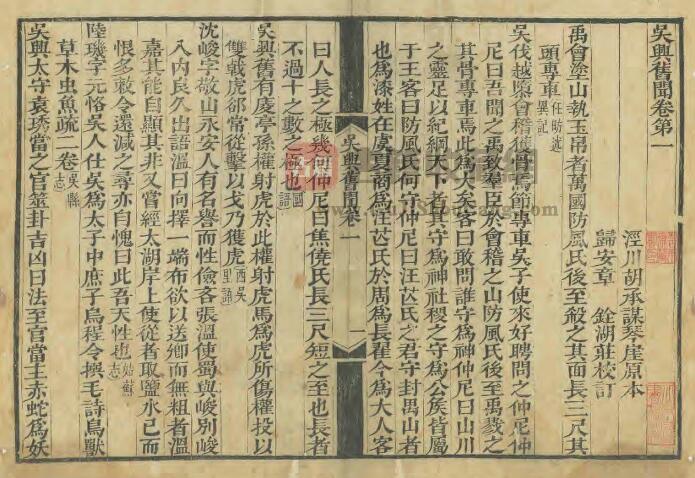 吳興舊聞卷第一
涇川胡承謀琴崖原本
歸安章銓湖莊校訂
禹會塗山執玉帛者萬國防風氏後至殺之其面長三尺其
頭專車任昉述異記
吳伐越隳會稽獲骨焉節專車吳子使來好聘問之仲尼仲
尼曰吾聞之禹致羣臣於會稽之山防風氏後至禹戮之
其骨專車焉此爲大矣客曰敢問誰守爲神仲尼曰山川
之靈足以紀綱天下者其守爲神社稷之守爲公矦皆屬
于王客曰防風氏何守仲尼曰汪芒氏之君守封禺山者
也爲漆姓在虞夏商爲汪芒氏於周爲長翟今爲大人客
曰人長之極幾何仲尼曰焦僥氏長三尺短之至也長者
不過十之數之極也國語
吳興舊聞卷一
一
吳興舊有庱亭孫權射虎於此權射虎馬爲虎所傷權投以
雙戟虎卻常從擊以戈乃獲虎西吳里語
沈峻字敬山永安人有名譽而性儉客張溫使蜀與峻別峻
入內良久出語溫曰向擇一端布欲以送卿而無粗者溫
嘉其能自顯其非又嘗經太湖岸上使從者取鹽水已而
恨多敕令還減之尋亦自愧曰此吾天性也姑蘇志
陸璣字元恪吳人仕吳爲太子中庶子烏程令撰毛詩鳥獸
草木虫魚疏二卷吳縣志
吳興太守袁琇當之官筮卦吉凶曰法至官當主赤蛇爲妖